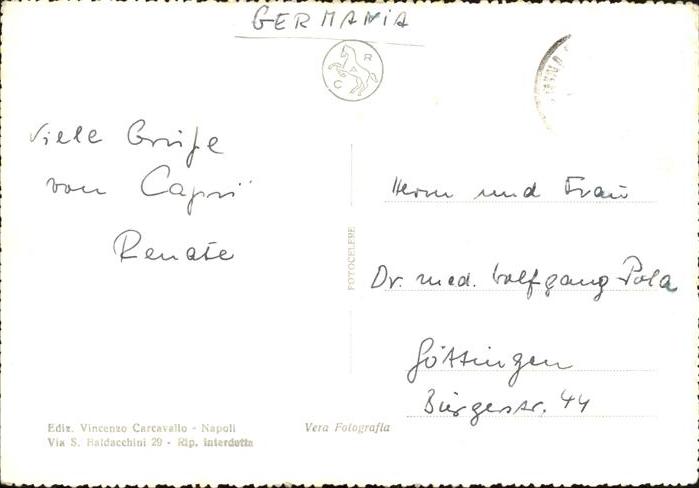 GERMANIA
R
A
C
Viele Grüße
von Capri
Renate
FOTOCELERE
Herrn und Frau
Dr. med. Wolfgang Pola
Göttingen
Bürgerstr. 44
Ediz. Vincenzo Carcavallo - Napoli
Via S. Baldacchini 29 - Rip. interdetta
Vera Fotografia